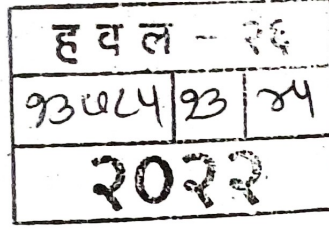 हवल - २६
१३७८५ | १३ | ४५
२०२२